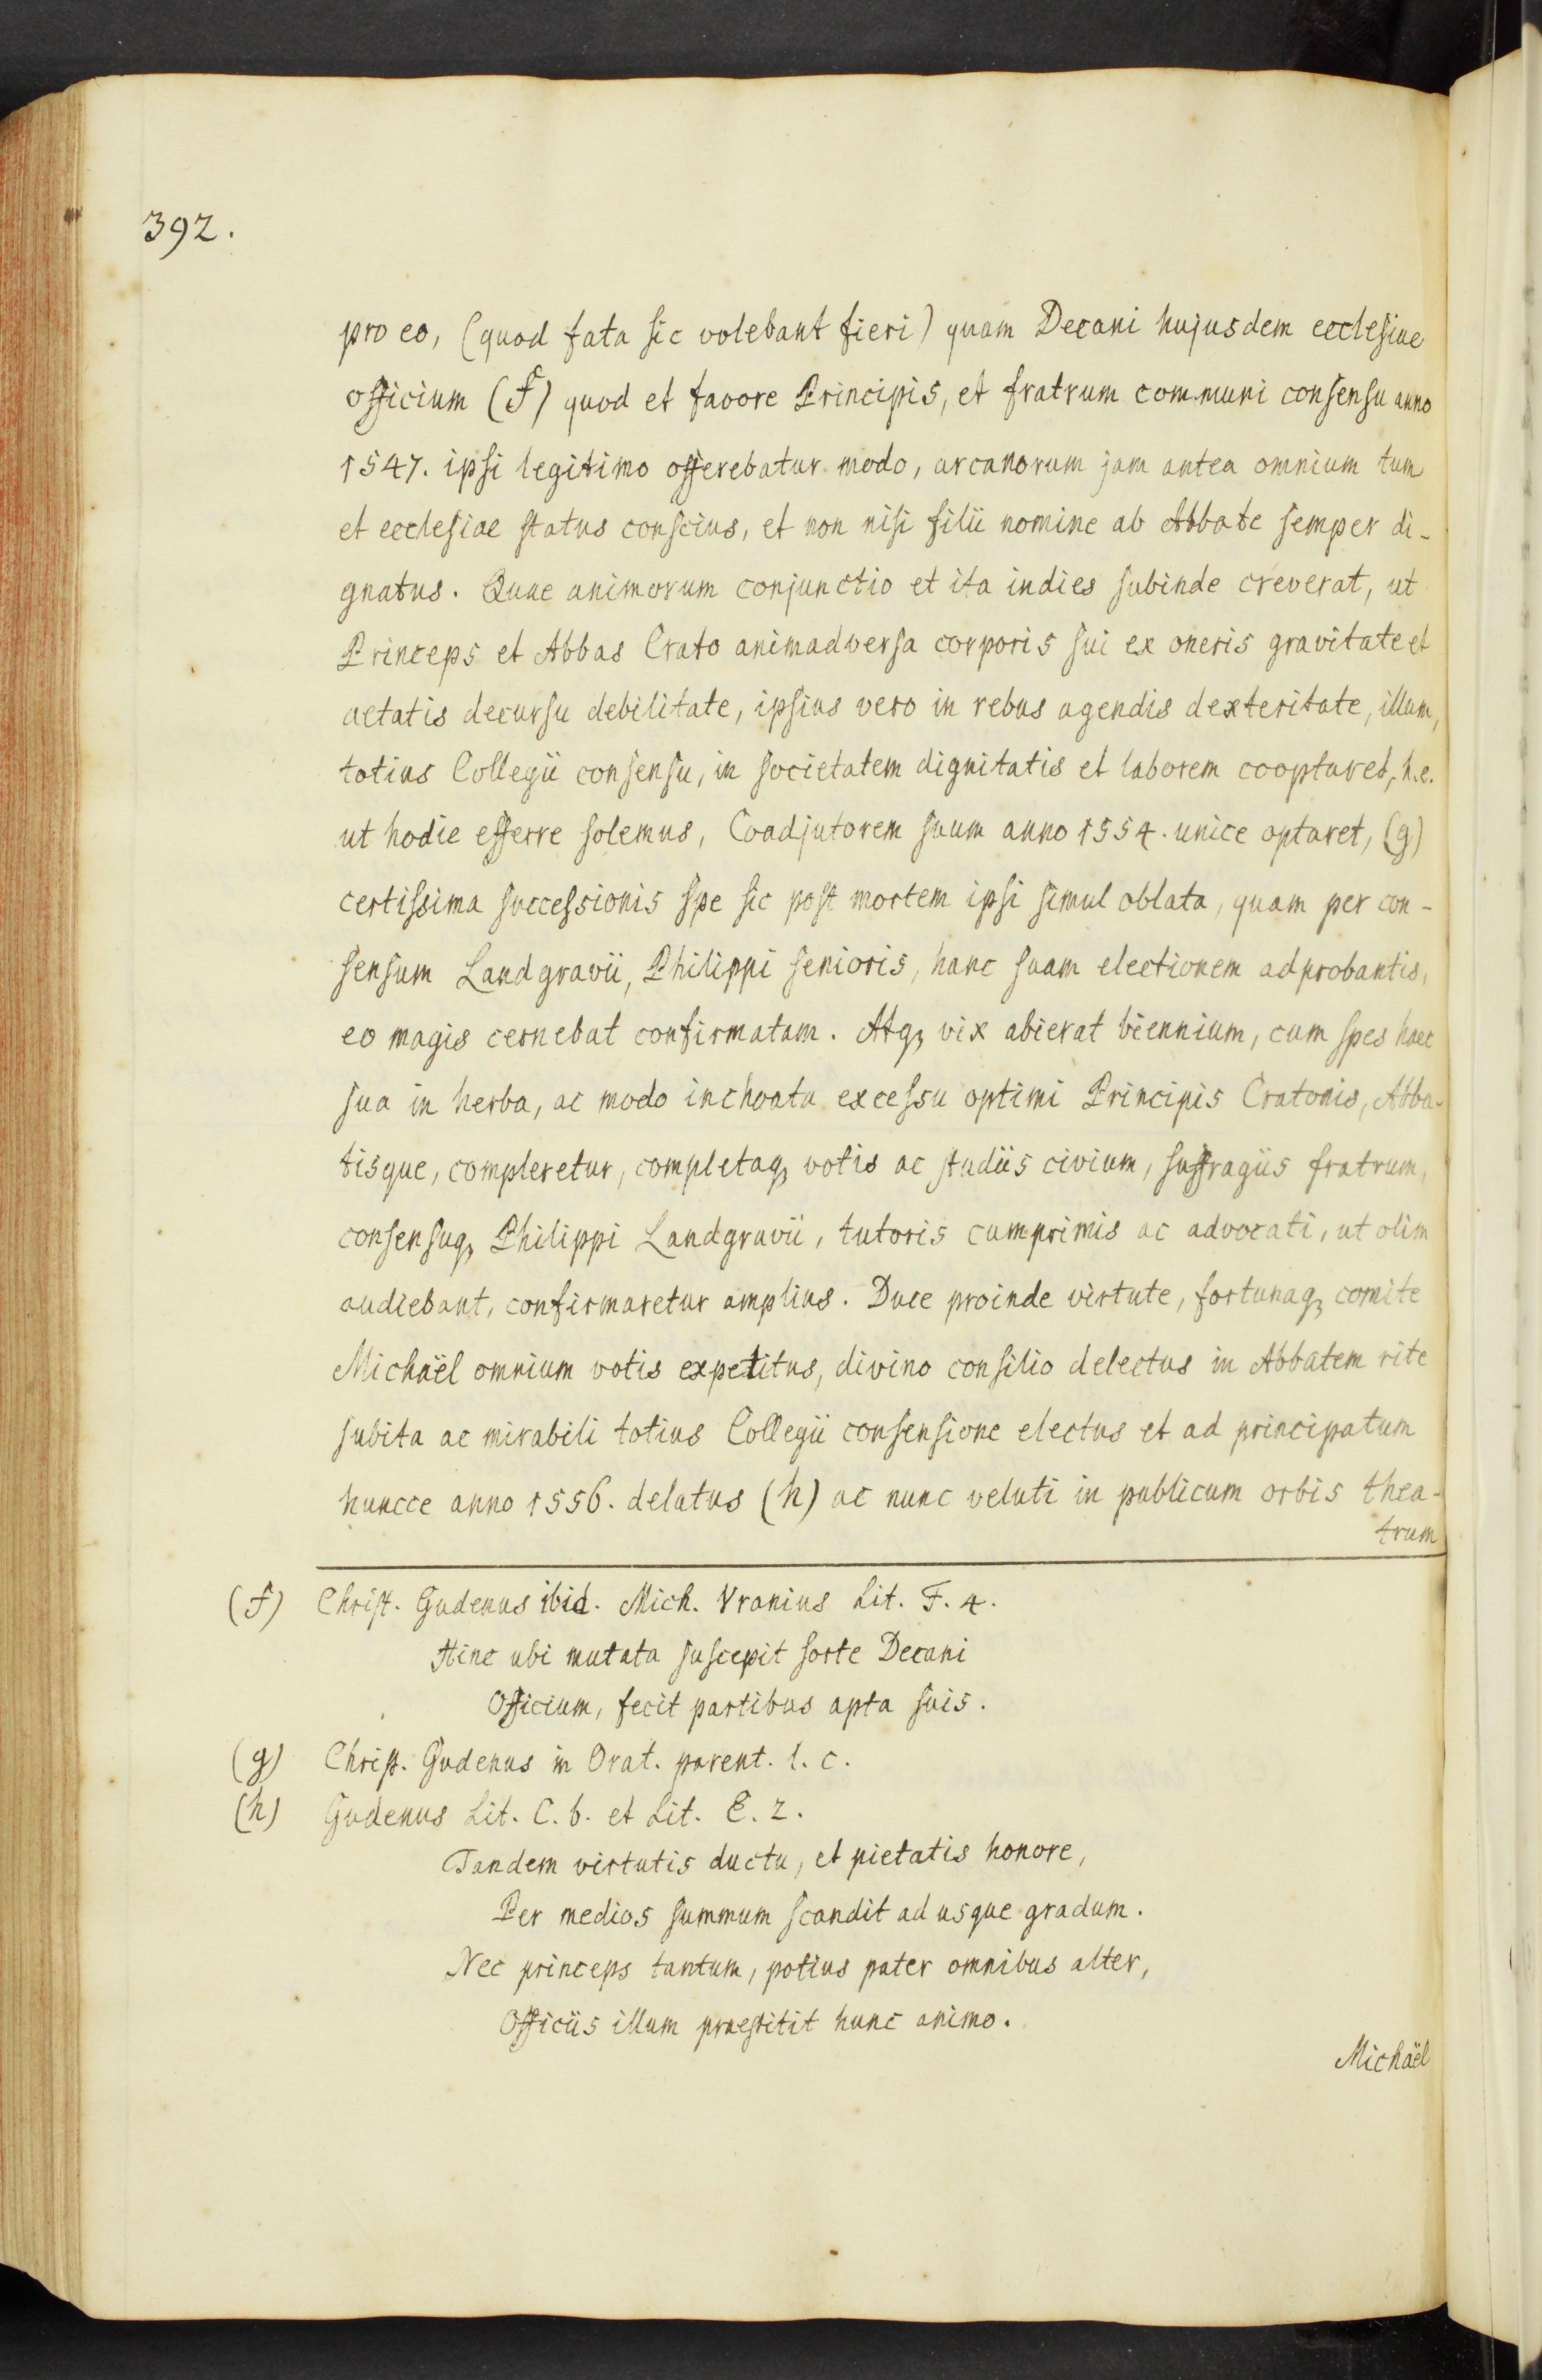 392.
pro eo, (quod fata sic volebant fieri) quam Decani hujusdem ecclesiae
officium (f) quod et favore Principis, et fratrum communi consensu anno
1547. ipsi legitimo offerebatur modo, arcanorum jam antea omnium tum
et ecclesiae status conscius, et non nisi filii nomine ab Abbate semper di-
gnatus. Quae animorum conjunctio et ita indies subinde creverat, ut
Princeps et Abbas Crato animadversa corporis sui ex oneris gravitate et
aetatis decursu debilitate, ipsius vero in rebus agendis dexteritate, illum,
totius Collegii consensu, in societatem dignitatis et laborem cooptaret, h.e.
ut hodie efferre solemus, Coadjutorem suum anno 1554. unice optaret, (g)
certissima successionis spe sic post mortem ipsi simul oblata, quam per con-
sensum Landgravii, Philippi senioris, hanc suam electionem adprobantis,
eo magis cernebat confirmatam. Atq, vix abierat biennium, cum spes haec
sua in herba, ac modo inchoata excessu optimi Principis Cratonis, Abba-
tisque, compleretur, completaq, votis ac studiis civium, suffragiis fratrum,
consensuq, Philippi Landgravii, tutoris cumprimis ac advocati, ut olim
audiebant, confirmaretur amplius. Duce proinde virtute, fortunaq, comite
Michaël omnium votis expetitus, divino consilio delectus in Abbatem rite
subita ac mirabili totius Collegii consensione electus et ad principatum
huncce anno 1556. delatus (h) ac nunc veluti in publicum orbis thea-
trum
(f) Christ. Gudenus ibid. Mich. Vranius Lit. F. 4.
Hinc ubi mutata suscepit sorte Decani
Officium, fecit partibus apta suis.
(g) Christ. Gudenus in Orat. parent. l. c.
(h) Gudenus Lit. C. b. et Lit. E. 2.
Tandem virtutis ductu, et pietatis honore,
Per medios summum scandit ad usque gradum.
Nec princeps tantum, potius pater omnibus alter,
Officiis illum praestitit hunc animo.
Michaël